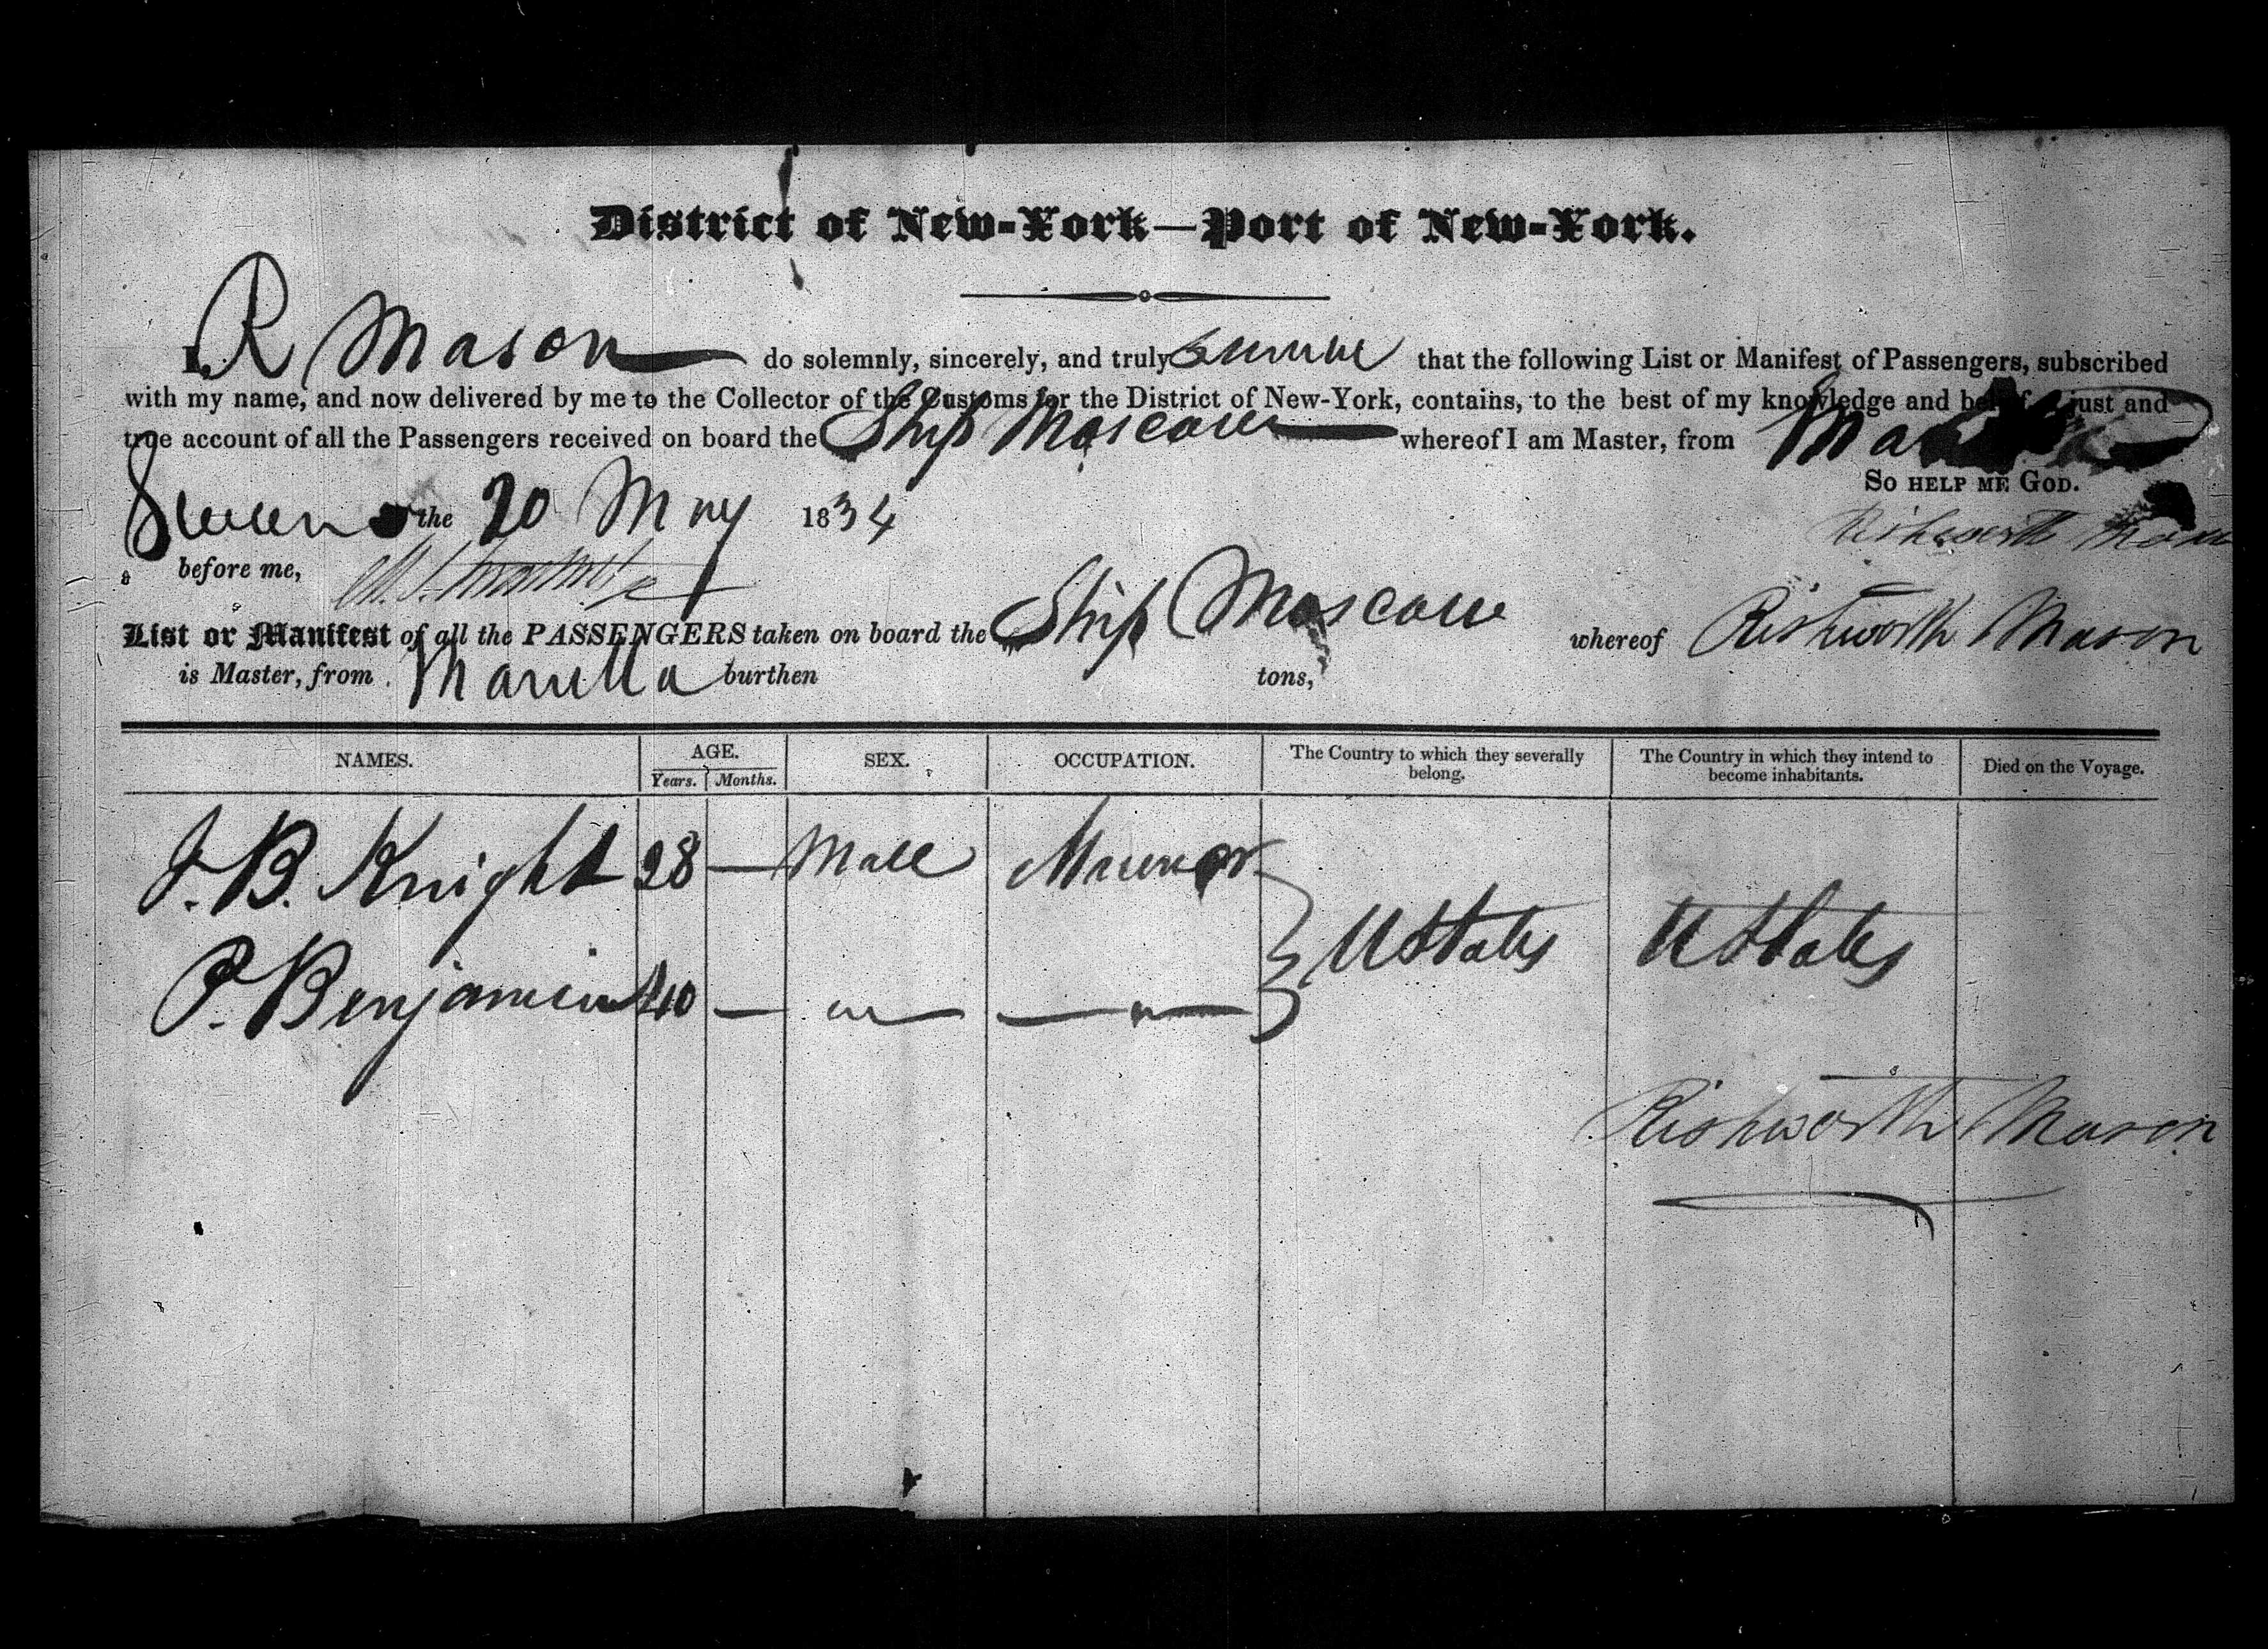 District of New-York—Port of New-York.
I, R Mason do solemnly, sincerely, and truly swear that the following List or Manifest of Passengers, subscribed
with my name, and now delivered by me to the Collector of the Customs for the District of New-York, contains, to the best of my knowledge and belief a just and
true account of all the Passengers received on board the Ship Moscow whereof I am Master, from
So help me God.
Sworn the 20 May 1834
Rishworth Mason
before me,
List or Manifest of all the PASSENGERS taken on board the Ship Moscow whereof Rishworth Mason
is Master, from Manilla burthen tons,
NAMES. AGE. SEX. OCCUPATION. The Country to which they severally belong. The Country in which they intend to become inhabitants. Died on the Voyage.
Years. Months.
J. B. Knight 28 — Male Mariner
U States U States
P. Benjamin 40 — " — "
Rishworth Mason